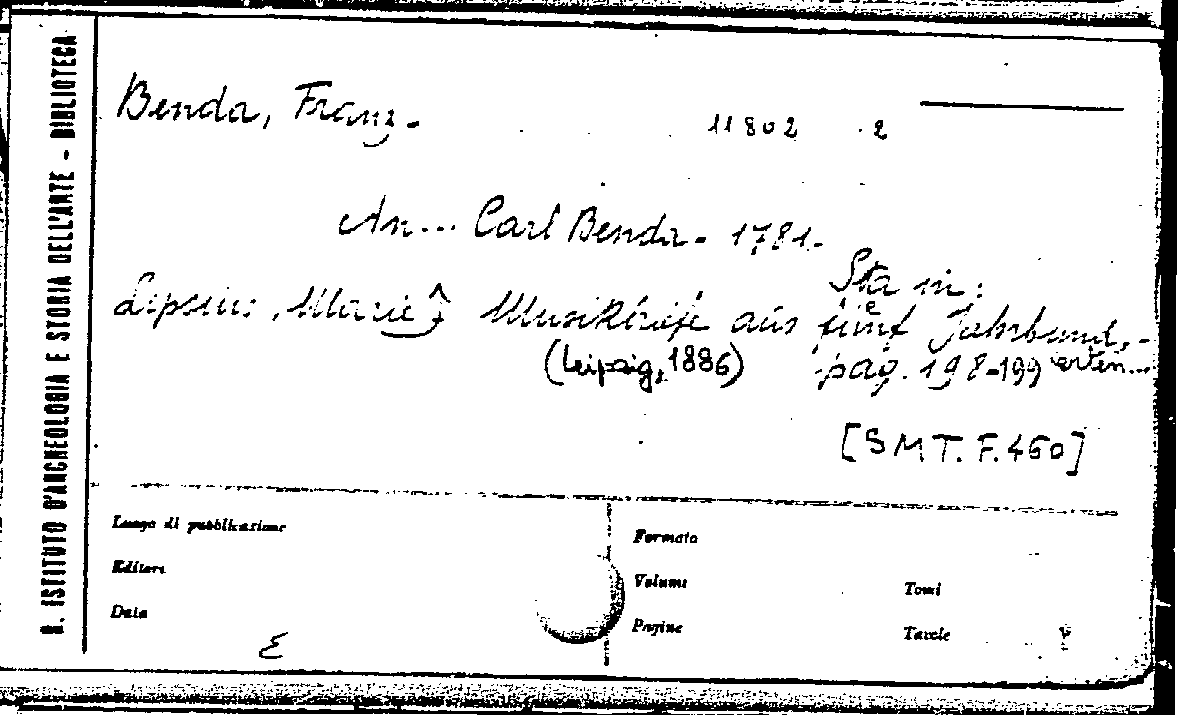 R. ISTITUTO D'ARCHEOLOGIA E STORIA DELL'ARTE - BIBLIOTECA
Benda, Franz.
11802 2
An... Carl Benda. 1781.
Sta in:
Lipsius, Marie, Musikbriefe aus fünf Jahrhund.-
erten...
(Leipzig, 1886) pag. 198-199
[S M T. F. 460]
Luogo di pubblicazione
Editore
Data
Formato
Volumi
Pagine
Tomi
Tavole